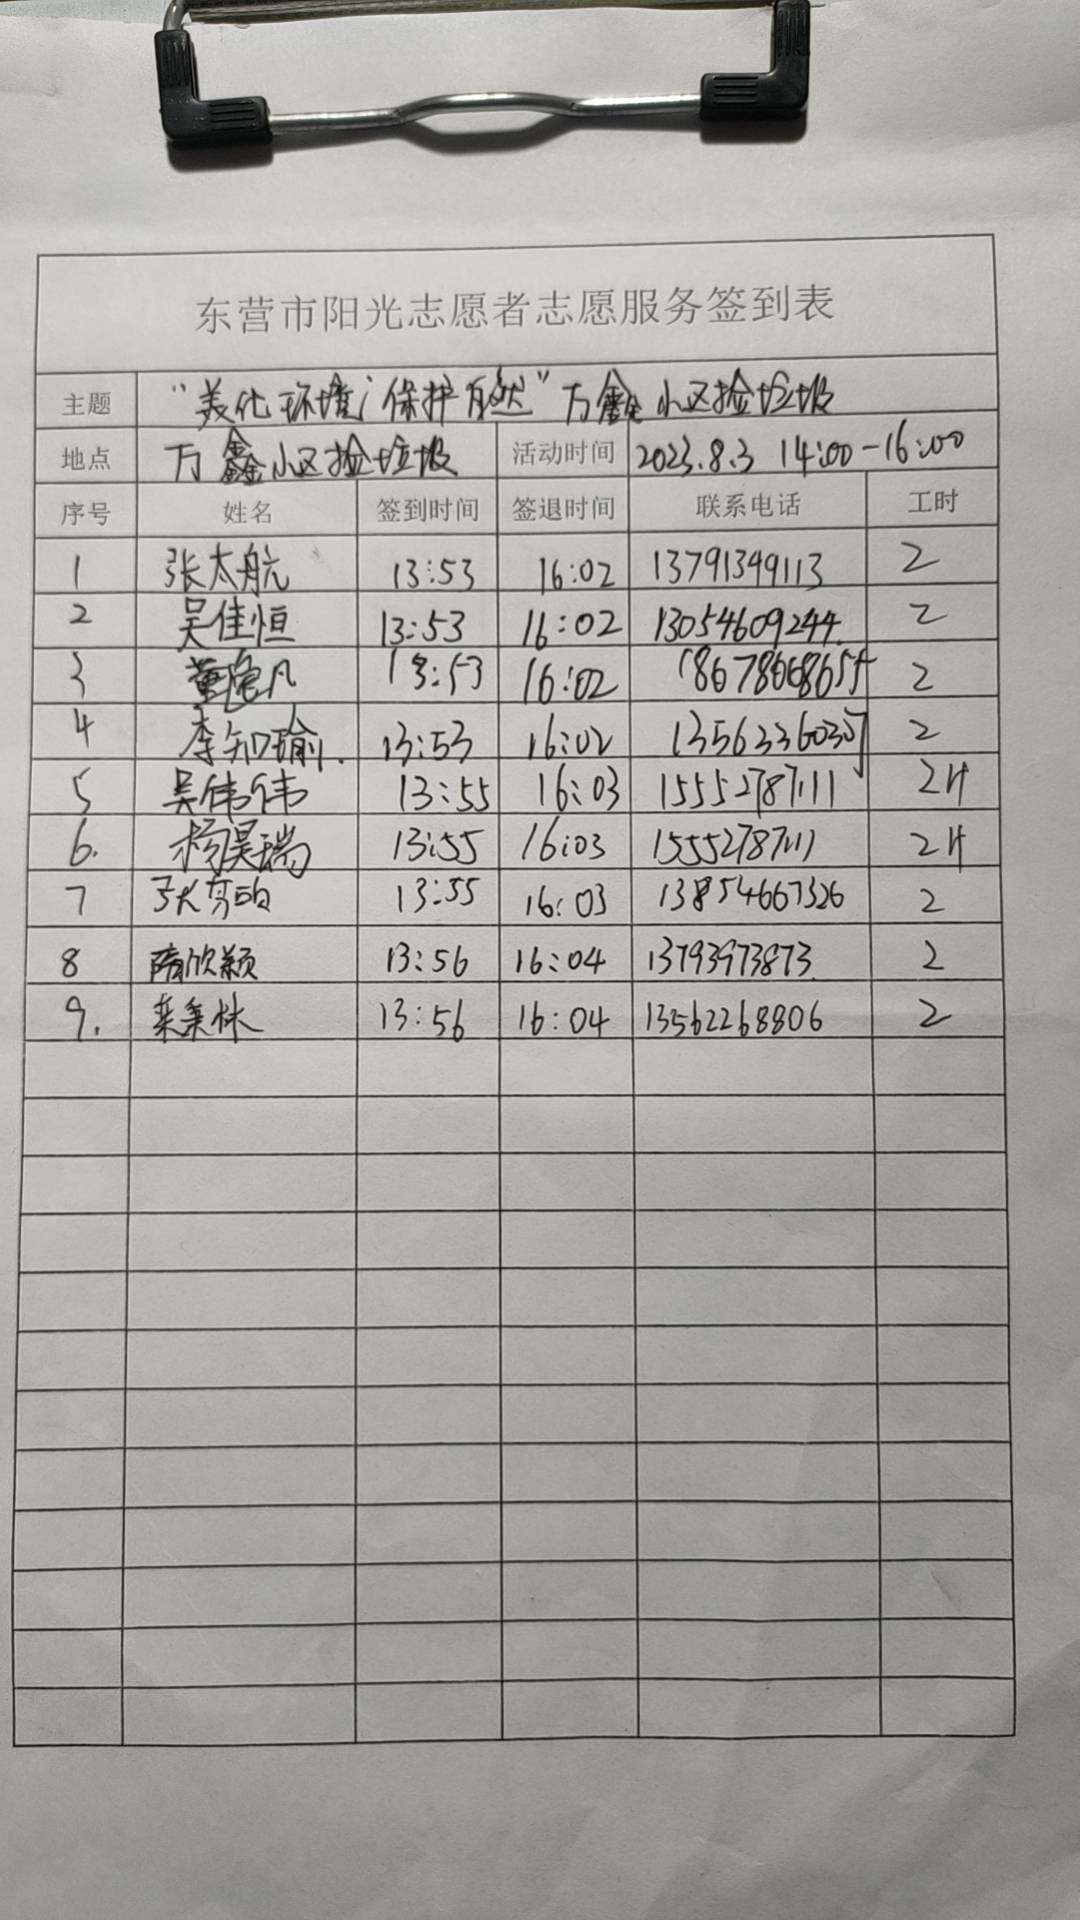 东营市阳光志愿者志愿服务签到表
主题 “美化环境，保护自然”万鑫小区捡垃圾
地点 万鑫小区捡垃圾 活动时间 2023.8.3 14:00-16:00
序号 姓名 签到时间 签退时间 联系电话 工时
1 张太航 13:53 16:02 13791349113 2
2 吴佳恒 13:53 16:02 13054609244 2
3 董逸凡 13:53 16:02 18678668655 2
4 李知瑜. 13:53 16:02 2
5 吴伟伟 13:55 16:03 15552787111 2H
6. 杨昊瑞 13:55 16:03 15552787111 2H
7 13:55 16:03 13854667326 2
8 隋欣颖 13:56 16:04 13793973873 2
9. 13:56 16:04 13562268806 2